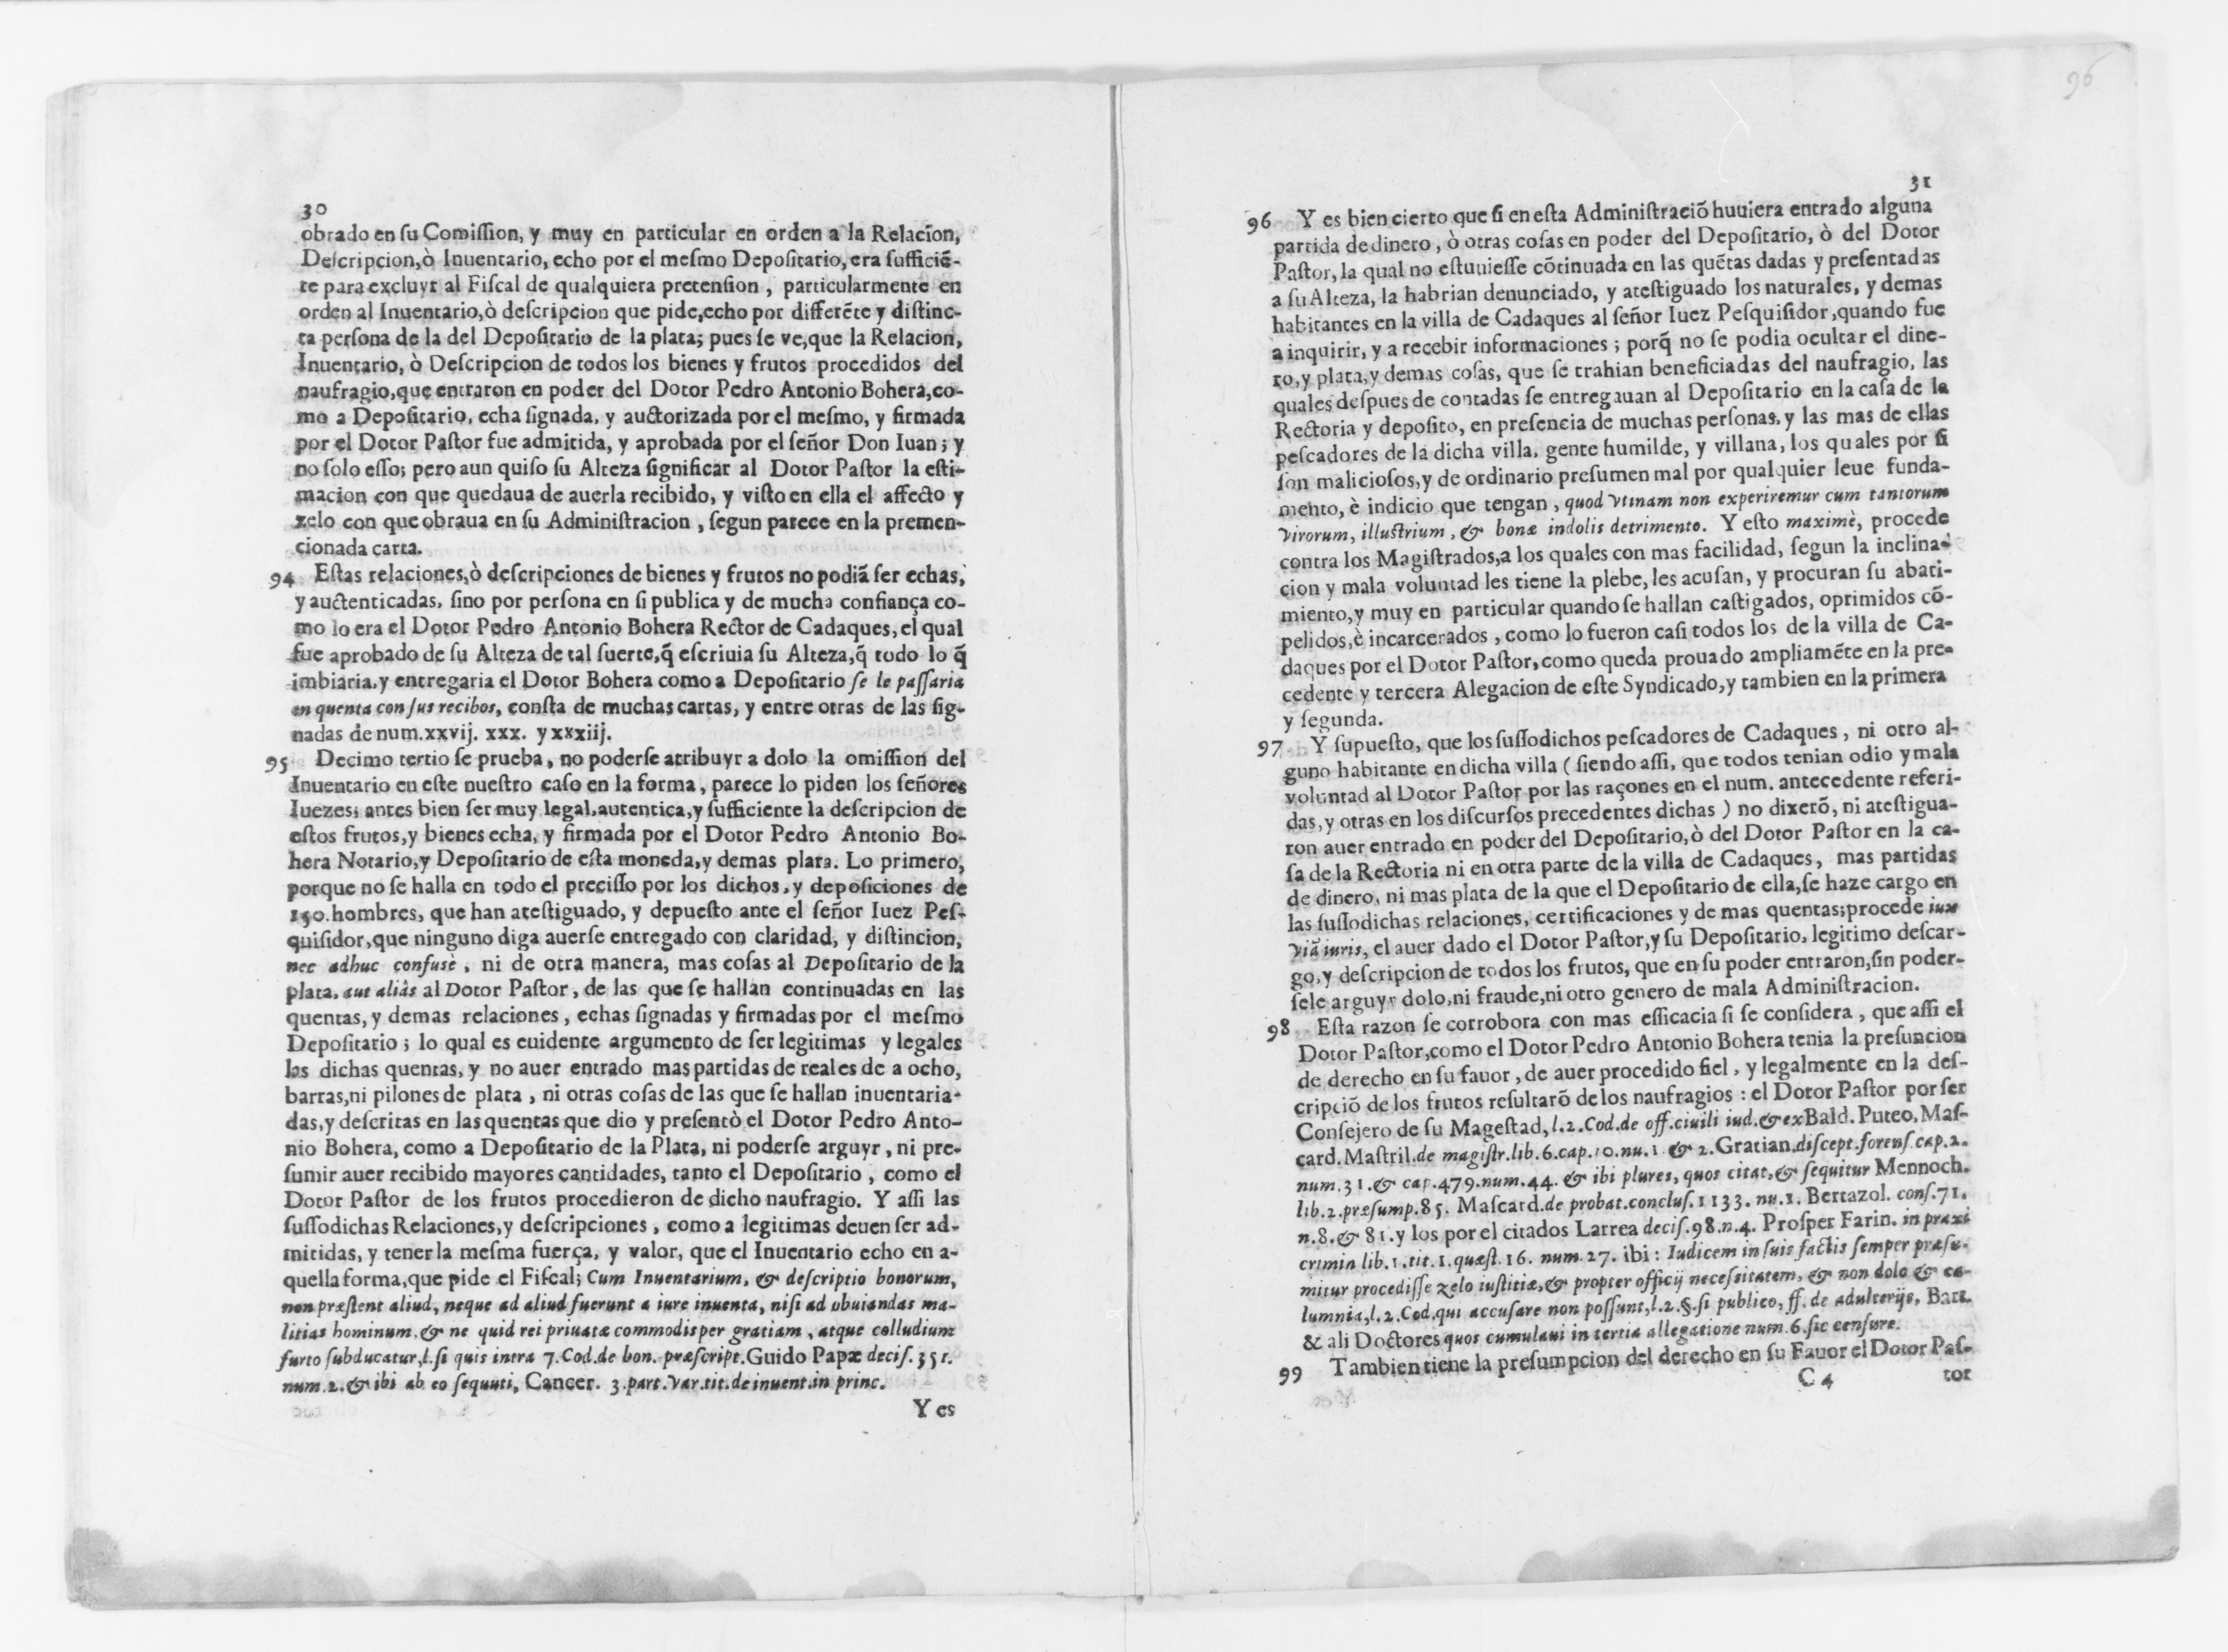 30
obrado en ſu Comiſſion, y muy en particular en orden a la Relacĩon,
Deſcripcion,ò Inuentario, echo por el meſmo Depoſitario, era ſufficiẽ-
te para excluyr al Fiſcal de qualquiera pretenſion , particularmente en
orden al Inuentario,ò deſcripcion que pide,echo por differẽte y diſtinc-
ta perſona de la del Depoſitario de la plata; pues ſe ve,que la Relacion,
Inuentario, ò Deſcripcion de todos los bienes y frutos procedidos del
naufragio,que entraron en poder del Dotor Pedro Antonio Bohera,co-
mo a Depoſitario, echa ſignada, y auctorizada por el meſmo, y firmada
por el Dotor Paſtor fue admitida, y aprobada por el ſeñor Don Iuan; y
no ſolo eſſo; pero aun quiſo ſu Alteza ſignificar al Dotor Paſtor la eſti-
macion con que quedaua de auerla recibido, y viſto en ella el affecto y
zelo con que obraua en ſu Adminiſtracion , ſegun parece en la premen-
cionada carta.
94 Eſtas relaciones,ò deſcripciones de bienes y frutos no podiã ſer echas,
y auctenticadas, ſino por perſona en ſi publica y de mucha confiança co-
mo lo era el Dotor Pedro Antonio Bohera Rector de Cadaques, el qual
fue aprobado de ſu Alteza de tal ſuerte,q̃ eſcriuia ſu Alteza,q̃ todo lo q̃
imbiaria,y entregaria el Dotor Bohera como a Depoſitario ſe le paſſaria
en quenta con ſus recibos, conſta de muchas cartas, y entre otras de las ſig-
nadas de num.xxvij. xxx. y xxxiij.
95 Decimo tertio ſe prueba, no poderſe atribuyr a dolo la omiſſion del
Inuentario en eſte nueſtro caſo en la forma, parece lo piden los ſeñores
Iuezes; antes bien ſer muy legal,autentica,y ſufficiente la deſcripcion de
eſtos frutos,y bienes echa, y firmada por el Dotor Pedro Antonio Bo-
hera Notario,y Depoſitario de eſta moneda,y demas plata. Lo primero,
porque no ſe halla en todo el preciſſo por los dichos, y depoſiciones de
150.hombres, que han ateſtiguado, y depueſto ante el ſeñor Iuez Peſ-
quiſidor,que ninguno diga auerſe entregado con claridad, y diſtincion,
nec adhuc confusè , ni de otra manera, mas coſas al Depoſitario de la
plata, aut aliàs al Dotor Paſtor , de las que ſe hallan continuadas en las
quentas, y demas relaciones , echas ſignadas y firmadas por el meſmo
Depoſitario ; lo qual es euidente argumento de ſer legitimas y legales
las dichas quentas, y no auer entrado mas partidas de reales de a ocho,
barras,ni pilones de plata , ni otras coſas de las que ſe hallan inuentaria-
das,y deſcritas en las quentas que dio y preſentò el Dotor Pedro Anto-
nio Bohera, como a Depoſitario de la Plata, ni poderſe arguyr , ni pre-
ſumir auer recibido mayores cantidades, tanto el Depoſitario , como el
Dotor Paſtor de los frutos procedieron de dicho naufragio. Y aſſi las
ſuſſodichas Relaciones,y deſcripciones , como a legitimas deuen ſer ad-
mitidas, y tener la meſma fuerça, y valor, que el Inuentario echo en a-
quella forma,que pide el Fiſcal; Cum Inuentarium, & deſcriptio bonorum,
non præſtent aliud, neque ad aliud fuerunt a iure inuenta, niſi ad obuiandas ma-
litias hominum, & ne quid rei priuatæ commodis per gratiam , atque colludium
furto ſubducatur,l.ſi quis intra 7.Cod.de bon. præſcript.Guido Papæ deciſ.351.
num.2.& ibi ab eo ſequuti, Cancer. 3.part.Var.tit.de inuent.in princ.
Y es
31
96 Y es bien cierto que ſi en eſta Adminiſtraciõ huuiera entrado alguna
partida de dinero , ò otras coſas en poder del Depoſitario, ò del Dotor
Paſtor, la qual no eſtuuieſſe cõtinuada en las quẽtas dadas y preſentadas
a ſu Alteza, la habrian denunciado, y ateſtiguado los naturales, y demas
habitantes en la villa de Cadaques al ſeñor Iuez Peſquiſidor,quando fue
a inquirir, y a recebir informaciones ; porq̃ no ſe podia ocultar el dine-
ro,y plata,y demas coſas, que ſe trahian beneficiadas del naufragio, las
quales deſpues de contadas ſe entregauan al Depoſitario en la caſa de la
Rectoria y depoſito, en preſencia de muchas perſonas, y las mas de ellas
peſcadores de la dicha villa, gente humilde, y villana, los quales por ſi
ſon malicioſos,y de ordinario preſumen mal por qualquier leue funda-
mento, è indicio que tengan , quod vtinam non experiremur cum tantorum
virorum, illuſtrium , & bonæ indolis detrimento. Y eſto maximè, procede
contra los Magiſtrados,a los quales con mas facilidad, ſegun la inclina-
cion y mala voluntad les tiene la plebe, les acuſan, y procuran ſu abati-
miento,y muy en particular quando ſe hallan caſtigados, oprimidos cõ-
pelidos,è incarcerados , como lo fueron caſi todos los de la villa de Ca-
daques por el Dotor Paſtor, como queda prouado ampliamẽte en la pre-
cedente y tercera Alegacion de eſte Syndicado,y tambien en la primera
y ſegunda.
97 Y ſupueſto, que los ſuſſodichos peſcadores de Cadaques , ni otro al-
guno habitante en dicha villa ( ſiendo aſſi, que todos tenian odio y mala
voluntad al Dotor Paſtor por las raçones en el num. antecedente referi-
das,y otras en los diſcurſos precedentes dichas ) no dixerõ, ni ateſtigua-
ron auer entrado en poder del Depoſitario,ò del Dotor Paſtor en la ca-
ſa de la Rectoria ni en otra parte de la villa de Cadaques , mas partidas
de dinero, ni mas plata de la que el Depoſitario de ella,ſe haze cargo en
las ſuſſodichas relaciones, certificaciones y de mas quentas;procede iux
viã iuris, el auer dado el Dotor Paſtor,y ſu Depoſitario, legitimo deſcar-
go,y deſcripcion de todos los frutos, que en ſu poder entraron,ſin poder-
ſele arguyr dolo,ni fraude,ni otro genero de mala Adminiſtracion.
98 Eſta razon ſe corrobora con mas efficacia ſi ſe conſidera , que aſſi el
Dotor Paſtor,como el Dotor Pedro Antonio Bohera tenia la preſuncion
de derecho en ſu fauor , de auer procedido fiel , y legalmente en la deſ-
cripciõ de los frutos reſultarõ de los naufragios : el Dotor Paſtor por ſer
Conſejero de ſu Mageſtad, l.2.Cod.de off.ciuili iud.& ex Bald. Puteo, Maſ-
card. Maſtril.de magiſtr.lib.6.cap.10.nu.1 & 2.Gratian.diſcept.forenſ.cap.2.
num.31.& cap.479.num.44. & ibi plures, quos citat,& ſequitur Mennoch.
lib.2.præſump.85. Maſcard.de probat.concluſ.1133. nu.1. Bertazol. conſ.71.
n.8.& 81.y los por el citados Larrea deciſ.98.n.4. Proſper Farin. in praxi
crimin lib.1.tit.1.quæſt.16. num.27. ibi : Iudicem in ſuis factis ſemper præſu-
mitur procediſſe zelo iuſtitiæ,& propter officij neceſsitatem, & non dolo & ca-
lumnia,l.2.Cod.qui accuſare non poſſunt,l.2.§.ſi publico, ff. de adulterijs, Bart.
& ali Doctores quos cumulaui in tertia allegatione num.6.ſic cenſure.
99 Tambien tiene la preſumpcion del derecho en ſu Fauor el Dotor Paſ-
C 4 tor
96